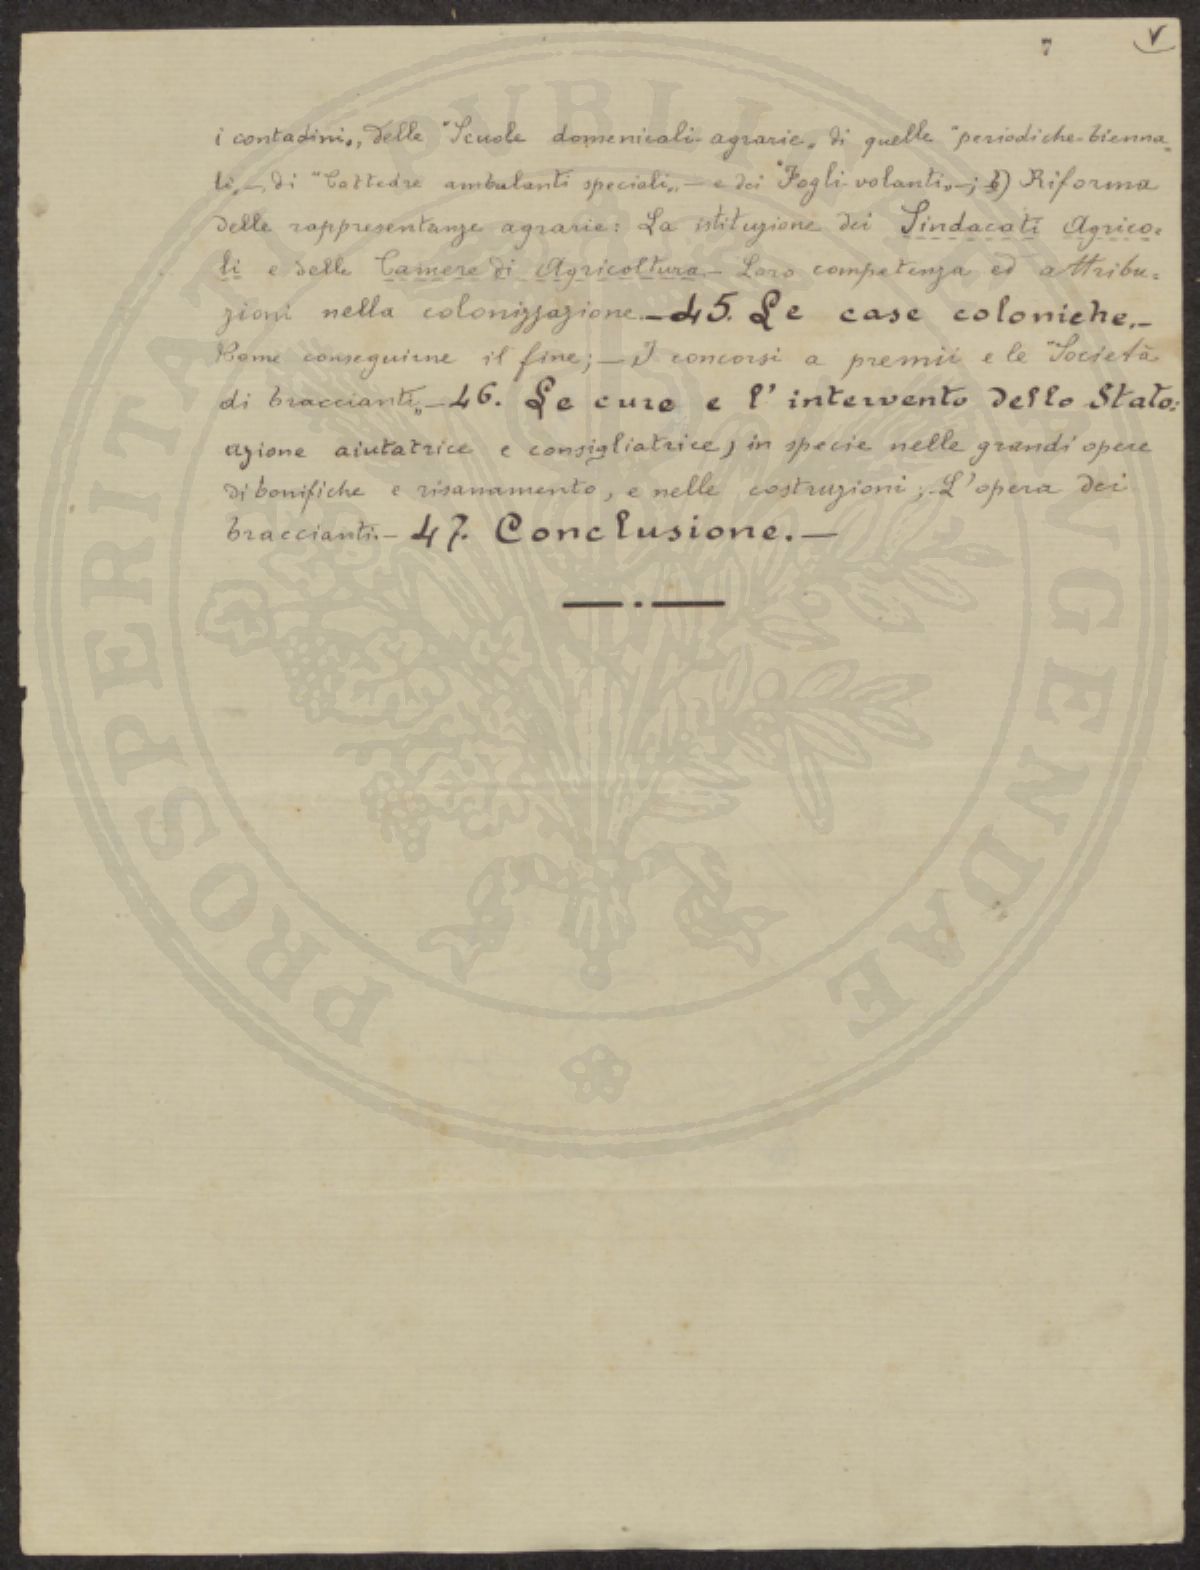 7 V
i contadini„, delle "Scuole domenicali-agrarie„ di quelle "periodiche-bienna-
li„ —, di "Cattedre ambulanti speciali„ — e dei "Fogli-volanti„ —; b) Riforma
delle rappresentanze agrarie: La istituzione dei Sindacati Agrico=
li e delle Camere di Agricoltura — Loro competenza ed attribu=
zioni nella colonizzazione. — 45. Le case coloniche. —
Come conseguirne il fine; — I concorsi a premii e le "Società
di braccianti„ — 46. Le cure e l'intervento dello Stato:
azione aiutatrice e consigliatrice, in specie nelle grandi opere
di bonifiche e risanamento, e nelle costruzioni; — L'opera dei
braccianti. — 47. Conclusione. —
PROSPERITATI PUBLICAE AUGENDAE